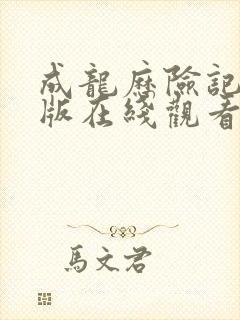 成龍歷險記
版在綫觀看
馬文君